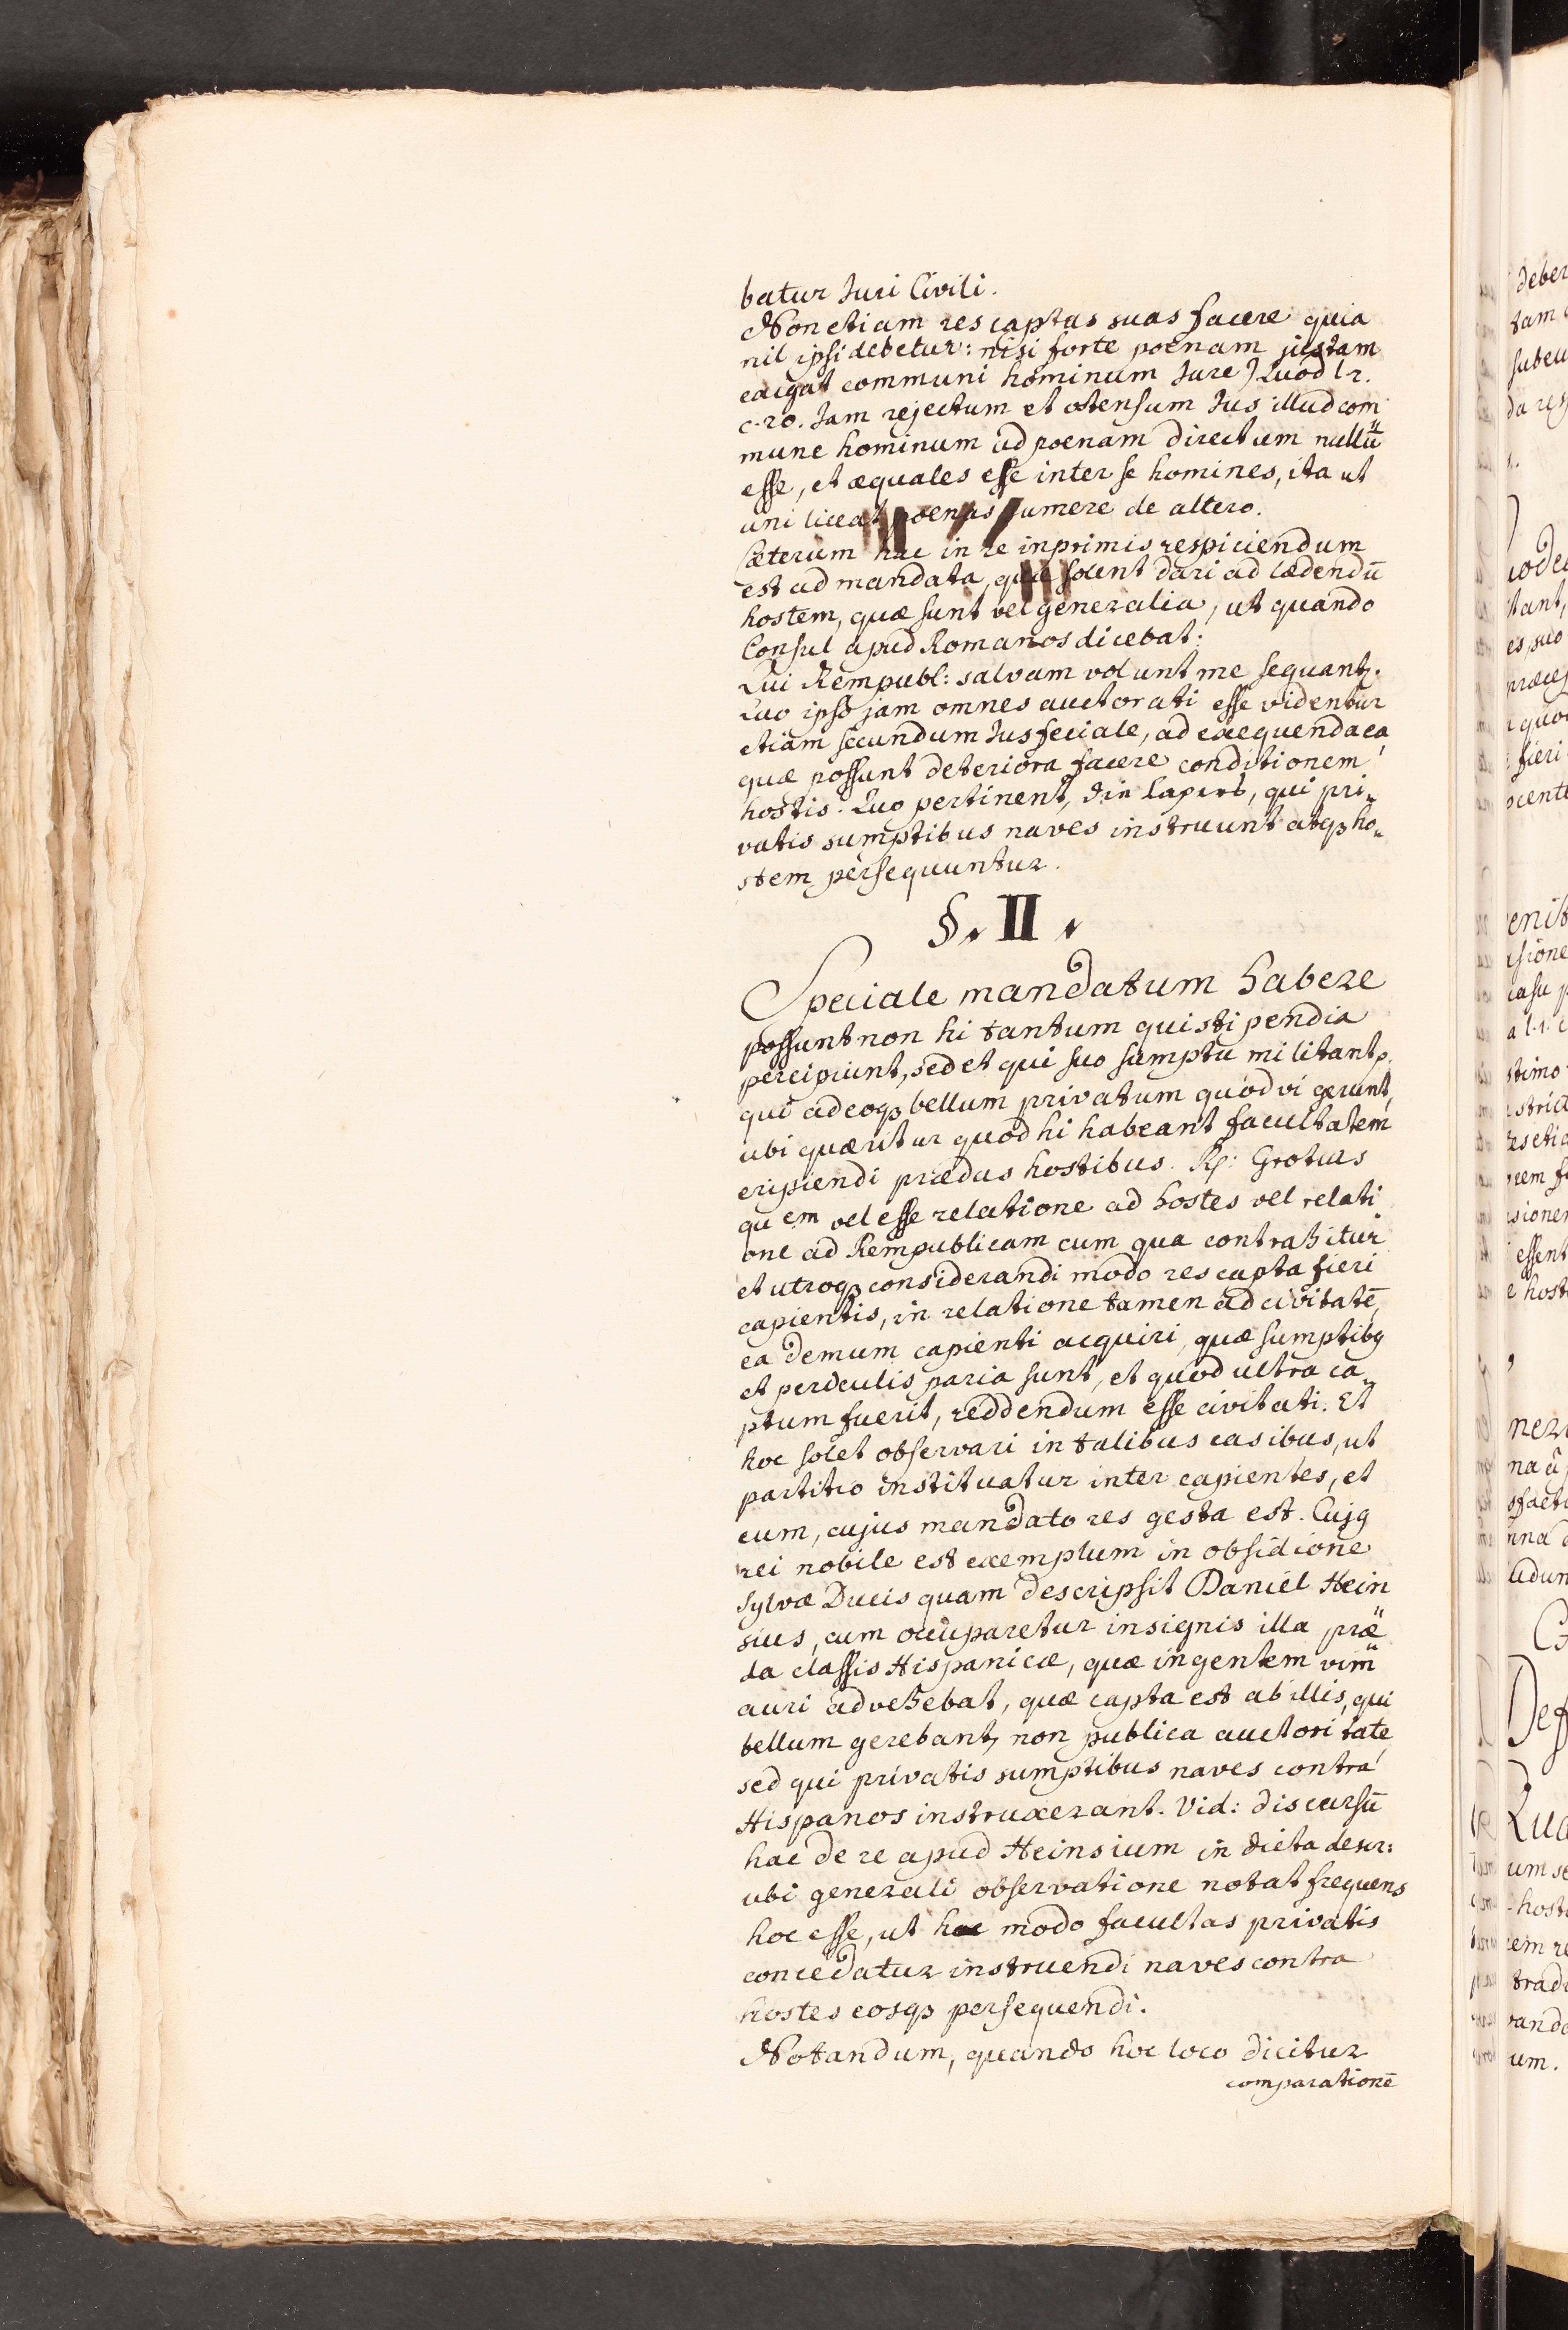 batur Juri Civili.
Non etiam res captas suas facere quia
nil ipsi debetur: nisi forte poenam justam
exigat communi hominum Jure) Quod l 2.
c. 20. Jam rejectum et ostensum Jus illud com
mune hominum ad poenam directum nullū
esse, et æquales esse inter se homines, ita ut
uni liceat poenas sumere de altero.
Cæterum hac in re inprimis respiciendum
est ad mandata, quæ solent dari ad lædendū
hostem, quæ sunt vel generalia, ut quando
Consul apud Romanos dicebat:
Qui Rempubl: salvam volunt me sequantꝛ.
Quo ipso jam omnes auctorati esse videntur
etiam secundum Jus feciale, ad exequenda ea
quæ possunt deteriora facere conditionem
hostis. Quo pertinent, die Capers, qui pri„
vatis sumptibus naves instruunt atqꝫ ho„
stem persequuntur.
§. II.
Speciale mandatum habere
possunt non hi tantum qui stipendia
percipiunt, sed et qui suo sumptu militant
qui adeoqꝫ bellum privatum quodvi gerunt,
ubi quæritur quod hi habeant facultatem
eripiendi prædas hostibus. Rp: Grotius
quem vel esse relatione ad hostes vel relati
one ad Rempublicam cum qua contrahitur
et utroqꝫ considerandi modo res capta fieri
capientis, in relatione tamen ad civitatē,
ea demum capienti acquiri, quæ sumptibꝯ
et perdculis paria sunt, et quod ultra ca„
ptum fuerit, reddendum esse civitati. Et
hoc solet observari in talibus casibus, ut
partitio instituatur inter capientes, et
eum, cujus mandato res gesta est. Cujꝯ
rei nobile est exemplum in obsidione
Sylvæ Ducis quam descripsit Daniel Hein
sius, cum occuparetur insignis illa præ„
da classis Hispanicæ, quæ ingentem vim
auri advehebat, quæ capta est ab illis, qui
bellum gerebant, non publica auctoritate
sed qui privatis sumptibus naves contra
Hispanos instruxerant. Vid: discursū
hac de re apud Heinsium in dicta descr:
ubi generali observatione notat frequens
hoc esse, ut hoc modo facultas privatis
concedatur instruendi naves contra
hostes eosqꝫ persequendi.
Notandum, quando hoc loco dicitur
comparationē